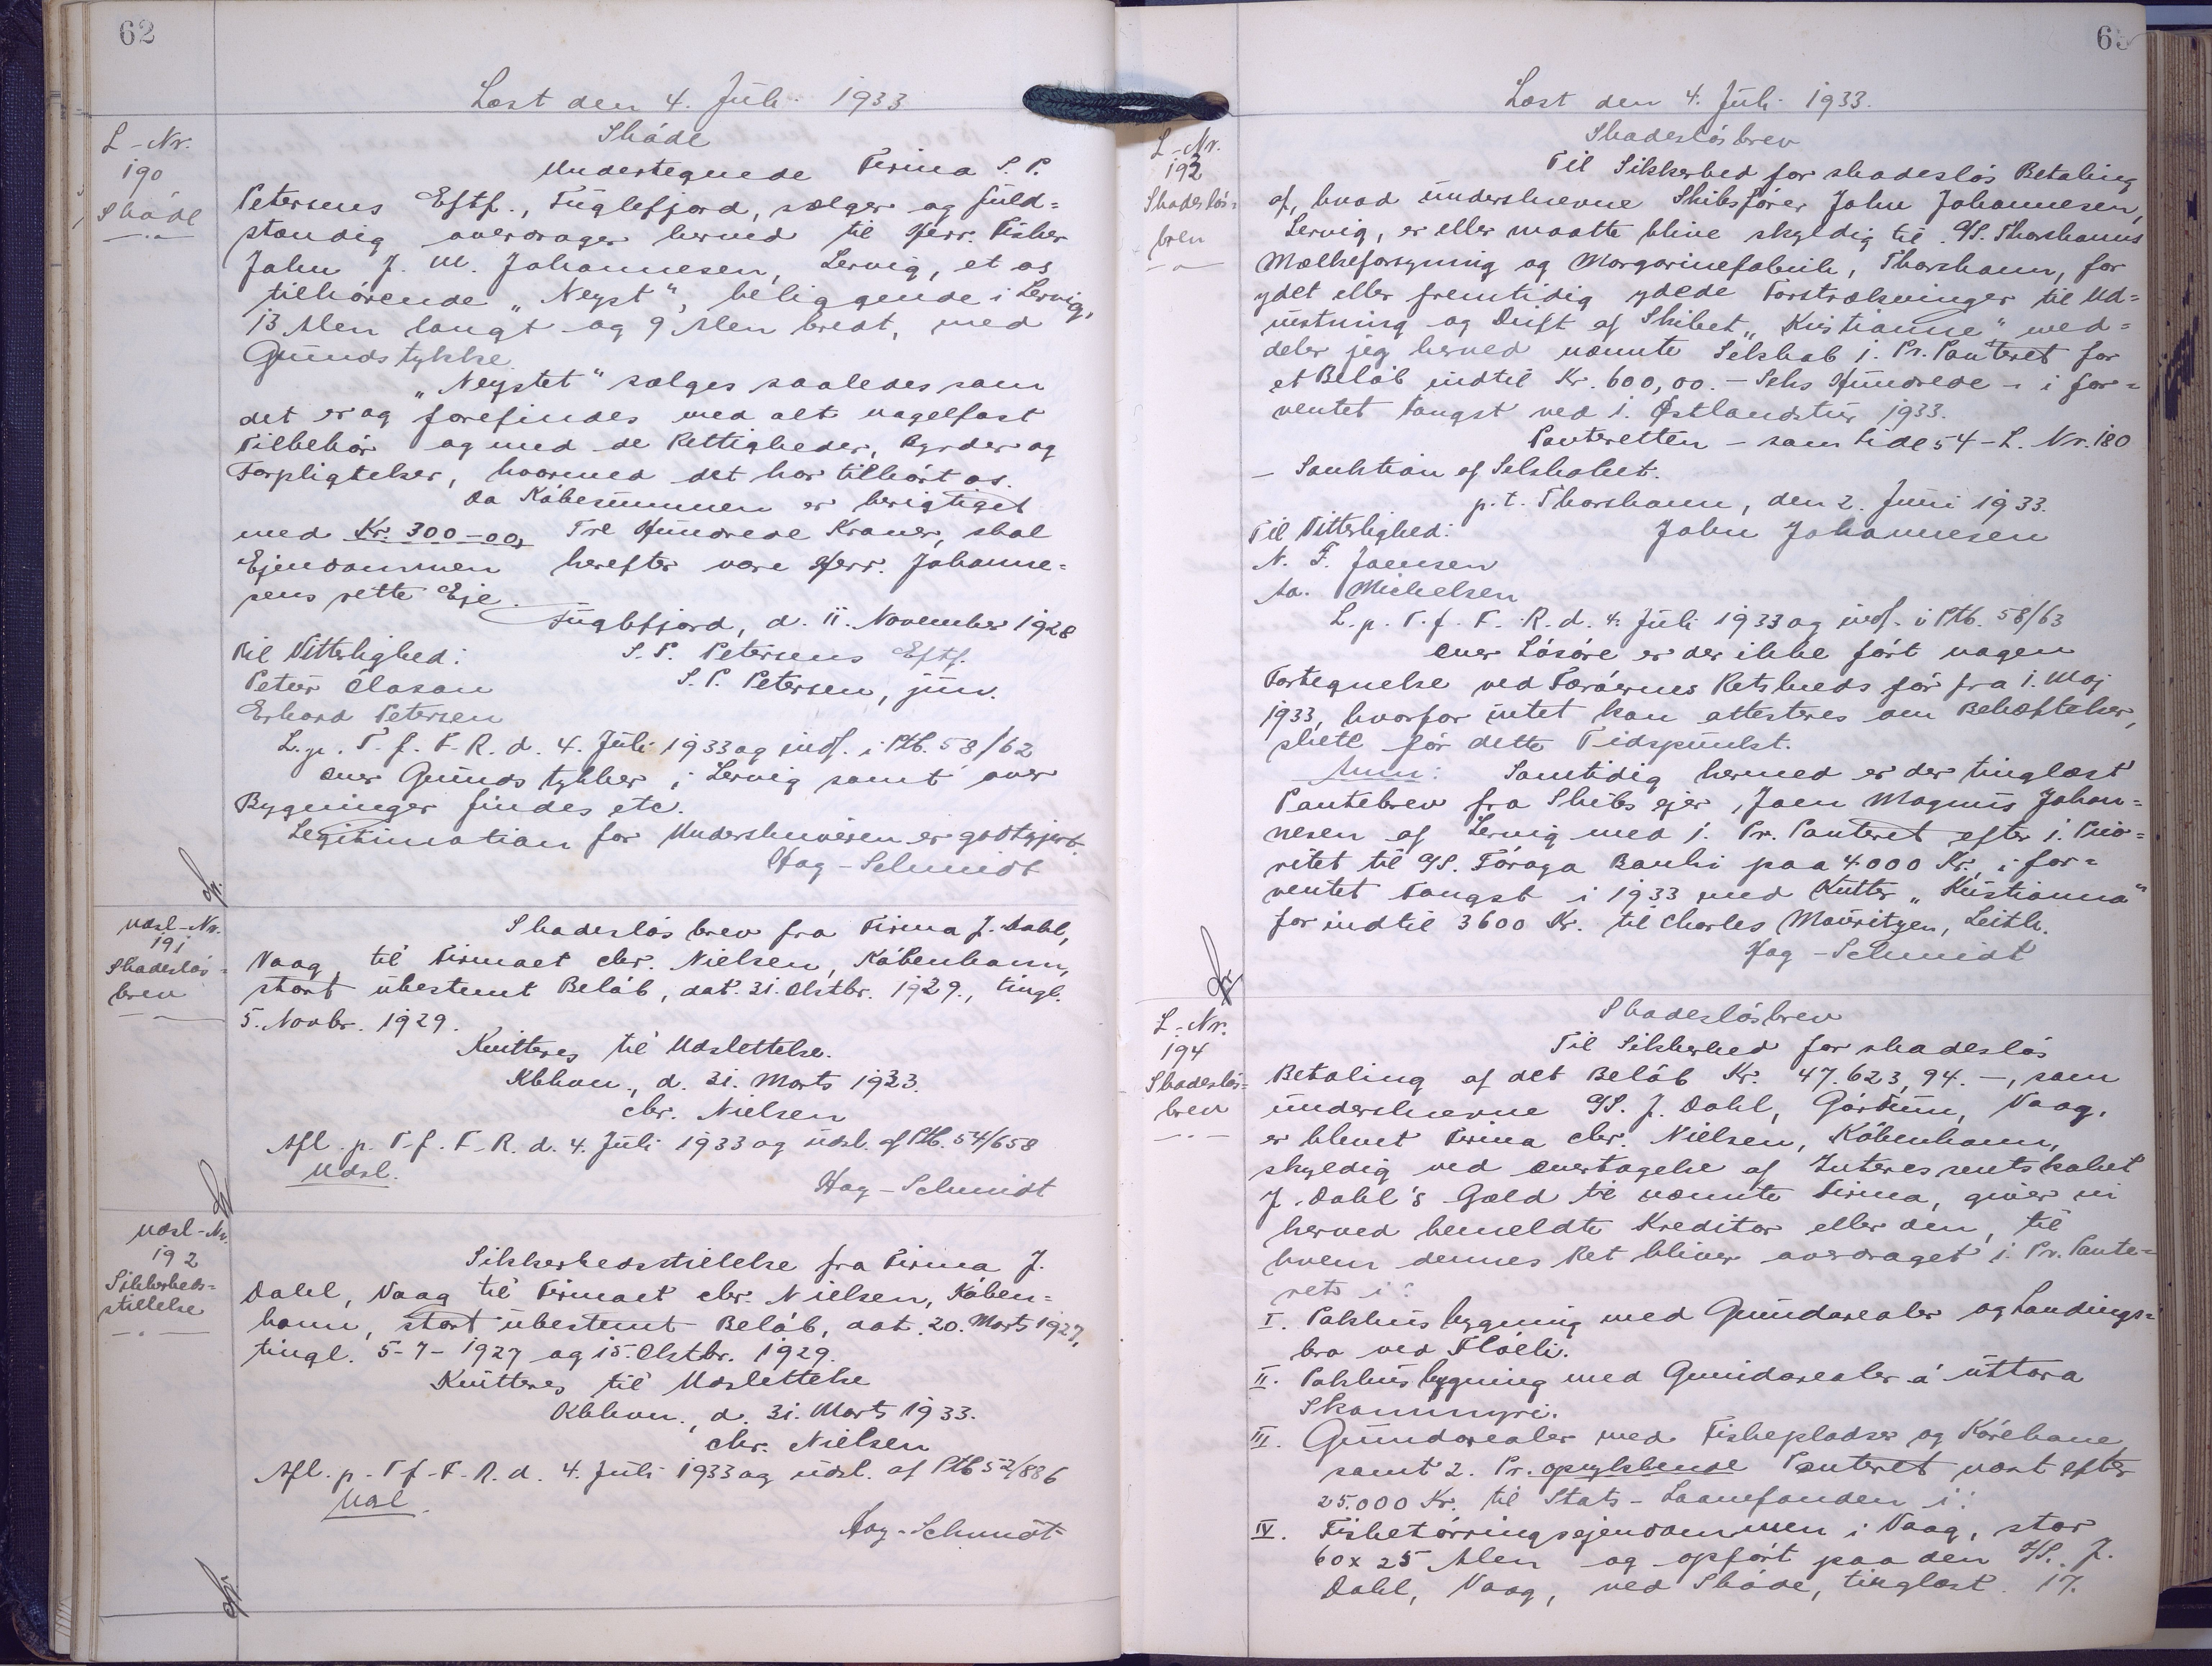 62
Læst den 4. Juli 1933
L-Nr.
190
Skøde
Skøde
Undertegnede Firma S. P.
Petersens Eftf., Fuglefjord, sælger og fuld=
stændig overdrager herved til Herr. Fisker
John J. M. Johannesen, Lervig, et os
tilhørende "Neyst", beliggende i Lervig,
13 Alen langt og 9 Alen bredt, med
Grundstykke.
"Neystet" sælges saaledes som
det er og forefindes med alt nagelfast
Tilbehør og med de Rettigheder, Byrder og
Forpligtelser, hvormed det har tilhørt os.
Da Købesummen er berigtiget
med Kr. 300-00, Tre Hundrede Kroner, skal
Ejendommen herefter være Herr. Johanne=
sens rette Eje.
Fuglefjord, d. 11. November 1928
Til Vitterlighed: S. P. Petersens Eftf.
Peter Olason S. P. Petersen, jun.
Erhard Petersen
L. p. T. f. F. R. d. 4. Juli 1933 og indf. i Ptb. 58/62
Over Grundstykker i Lervig samt over
Bygninger findes etc.
Legitimation for Underskriveren er godtgjort.
Hag-Schmidt
Udsl-Nr.
191
Skadesløs=
brev
Skadesløsbrev fra Firma J. Dahl,
Vaag, til Firmaet Chr. Nielsen, København,
stort ubestemt Beløb, dat. 31. Oktbr. 1929., tingl.
5. Novbr. 1929.
Kvitteres til Udslettelse.
Kbhvn., d. 31. Marts 1933.
Chr. Nielsen
Afl. p. T. f. F. R. d. 4. Juli 1933 og udsl. af Ptb. 54/658
Udsl.
Hag-Schmidt
Udsl-Nr.
192
Sikkerheds=
stillelse
Sikkerhedsstillelse fra Firma J.
Dahl, Vaag til Firmaet Chr. Nielsen, Køben=
havn, stort ubestemt Beløb, dat. 20. Marts 1927,
tingl. 5-7-1927 og 15. Oktbr. 1929.
Kvitteres til Udslettelse
Kbhvn., d. 31. Marts 1933.
Chr. Nielsen
Afl. p. T. f. F. R. d. 4. Juli 1933 og udsl. af Ptb 52/886
Udsl.
Hag-Schmidt
Læst den 4. Juli 1933.
L-Nr.
193
Skadesløs=
brev
Skadesløsbrev
Til Sikkerhed for skadesløs Betaling
af, hvad underskrevne Skibsfører John Johannesen,
Lervig, er eller maatte blive skyldig til A/S. Thorshavns
Mælkeforsyning og Margarinefabrik, Thorshavn, for
ydet eller fremtidig ydede Forstrækninger til Ud=
rustning og Drift af Skibet "Kristianne" med=
deler jeg herved nævnte Selskab 1. Pr. Panteret for
et Beløb indtil Kr. 600,00. - Seks Hundrede - i for=
ventet Fangst ved 1. Østlandstur 1933.
Panteretten - som Side 54 - L. Nr. 180
- Sanktion af Selskabet.
p. t. Thorshavn, den 2. Juni 1933.
Til Vitterlighed: John Johannesen
N. F. Joensen
Michelsen
L. p. T. f. F. R. d. 4. Juli 1933 og indf. i Ptb. 58/63
Over Løsøre er der ikke ført nogen
Fortegnelse ved Færøernes Retskreds før fra 1. Maj
1933, hvorfor intet kan attesteres om Behæftelser,
skete før dette Tidspunkt.
Anm: Samtidig hermed er der tinglæst
Pantebrev fra Skibsejer, Joen Magnus Johan=
nesen af Lervig med 1. Pr. Panteret efter 1. Prio=
ritet til A/S. Føroya Banki paa 4000 Kr., i for=
ventet Fangst i 1933 med Kutter "Kristianna"
for indtil 3600 Kr. til Charles Mauritzen, Leith.
Hag-Schmidt
L-Nr.
194
Skadesløs=
brev
Skadesløsbrev
Til Sikkerhed for skadesløs
Betaling af det Beløb Kr. 47.623,94. -, som
underskrevne A/S. J. Dahl, Gørdum, Vaag,
er blevet Firma Chr. Nielsen, København,
skyldig ved Overtagelse af Interessentskabet
J. Dahl's Gæld til nævnte Firma, giver vi
herved bemeldte Kreditor eller den, til
hvem dennes Ret bliver overdraget 1. Pr. Pante=
ret i:
I. Pakhusbygning med Grundarealer og Landings=
bro ved Fløeli.
II. Pakhusbygning med Grundarealer á úttara
Skammyri.
III. Grundarealer med Fiskepladser og
samt 2. Pr. oprykkende Panteret næst efter
25.000 Kr. til Stats-Laanefonden i:
IV. Fisketørringsejendommen i Vaag, stor
60 x 25 Alen og opført paa den A/S. J.
Dahl, Vaag, ved Skøde, tinglæst 17.